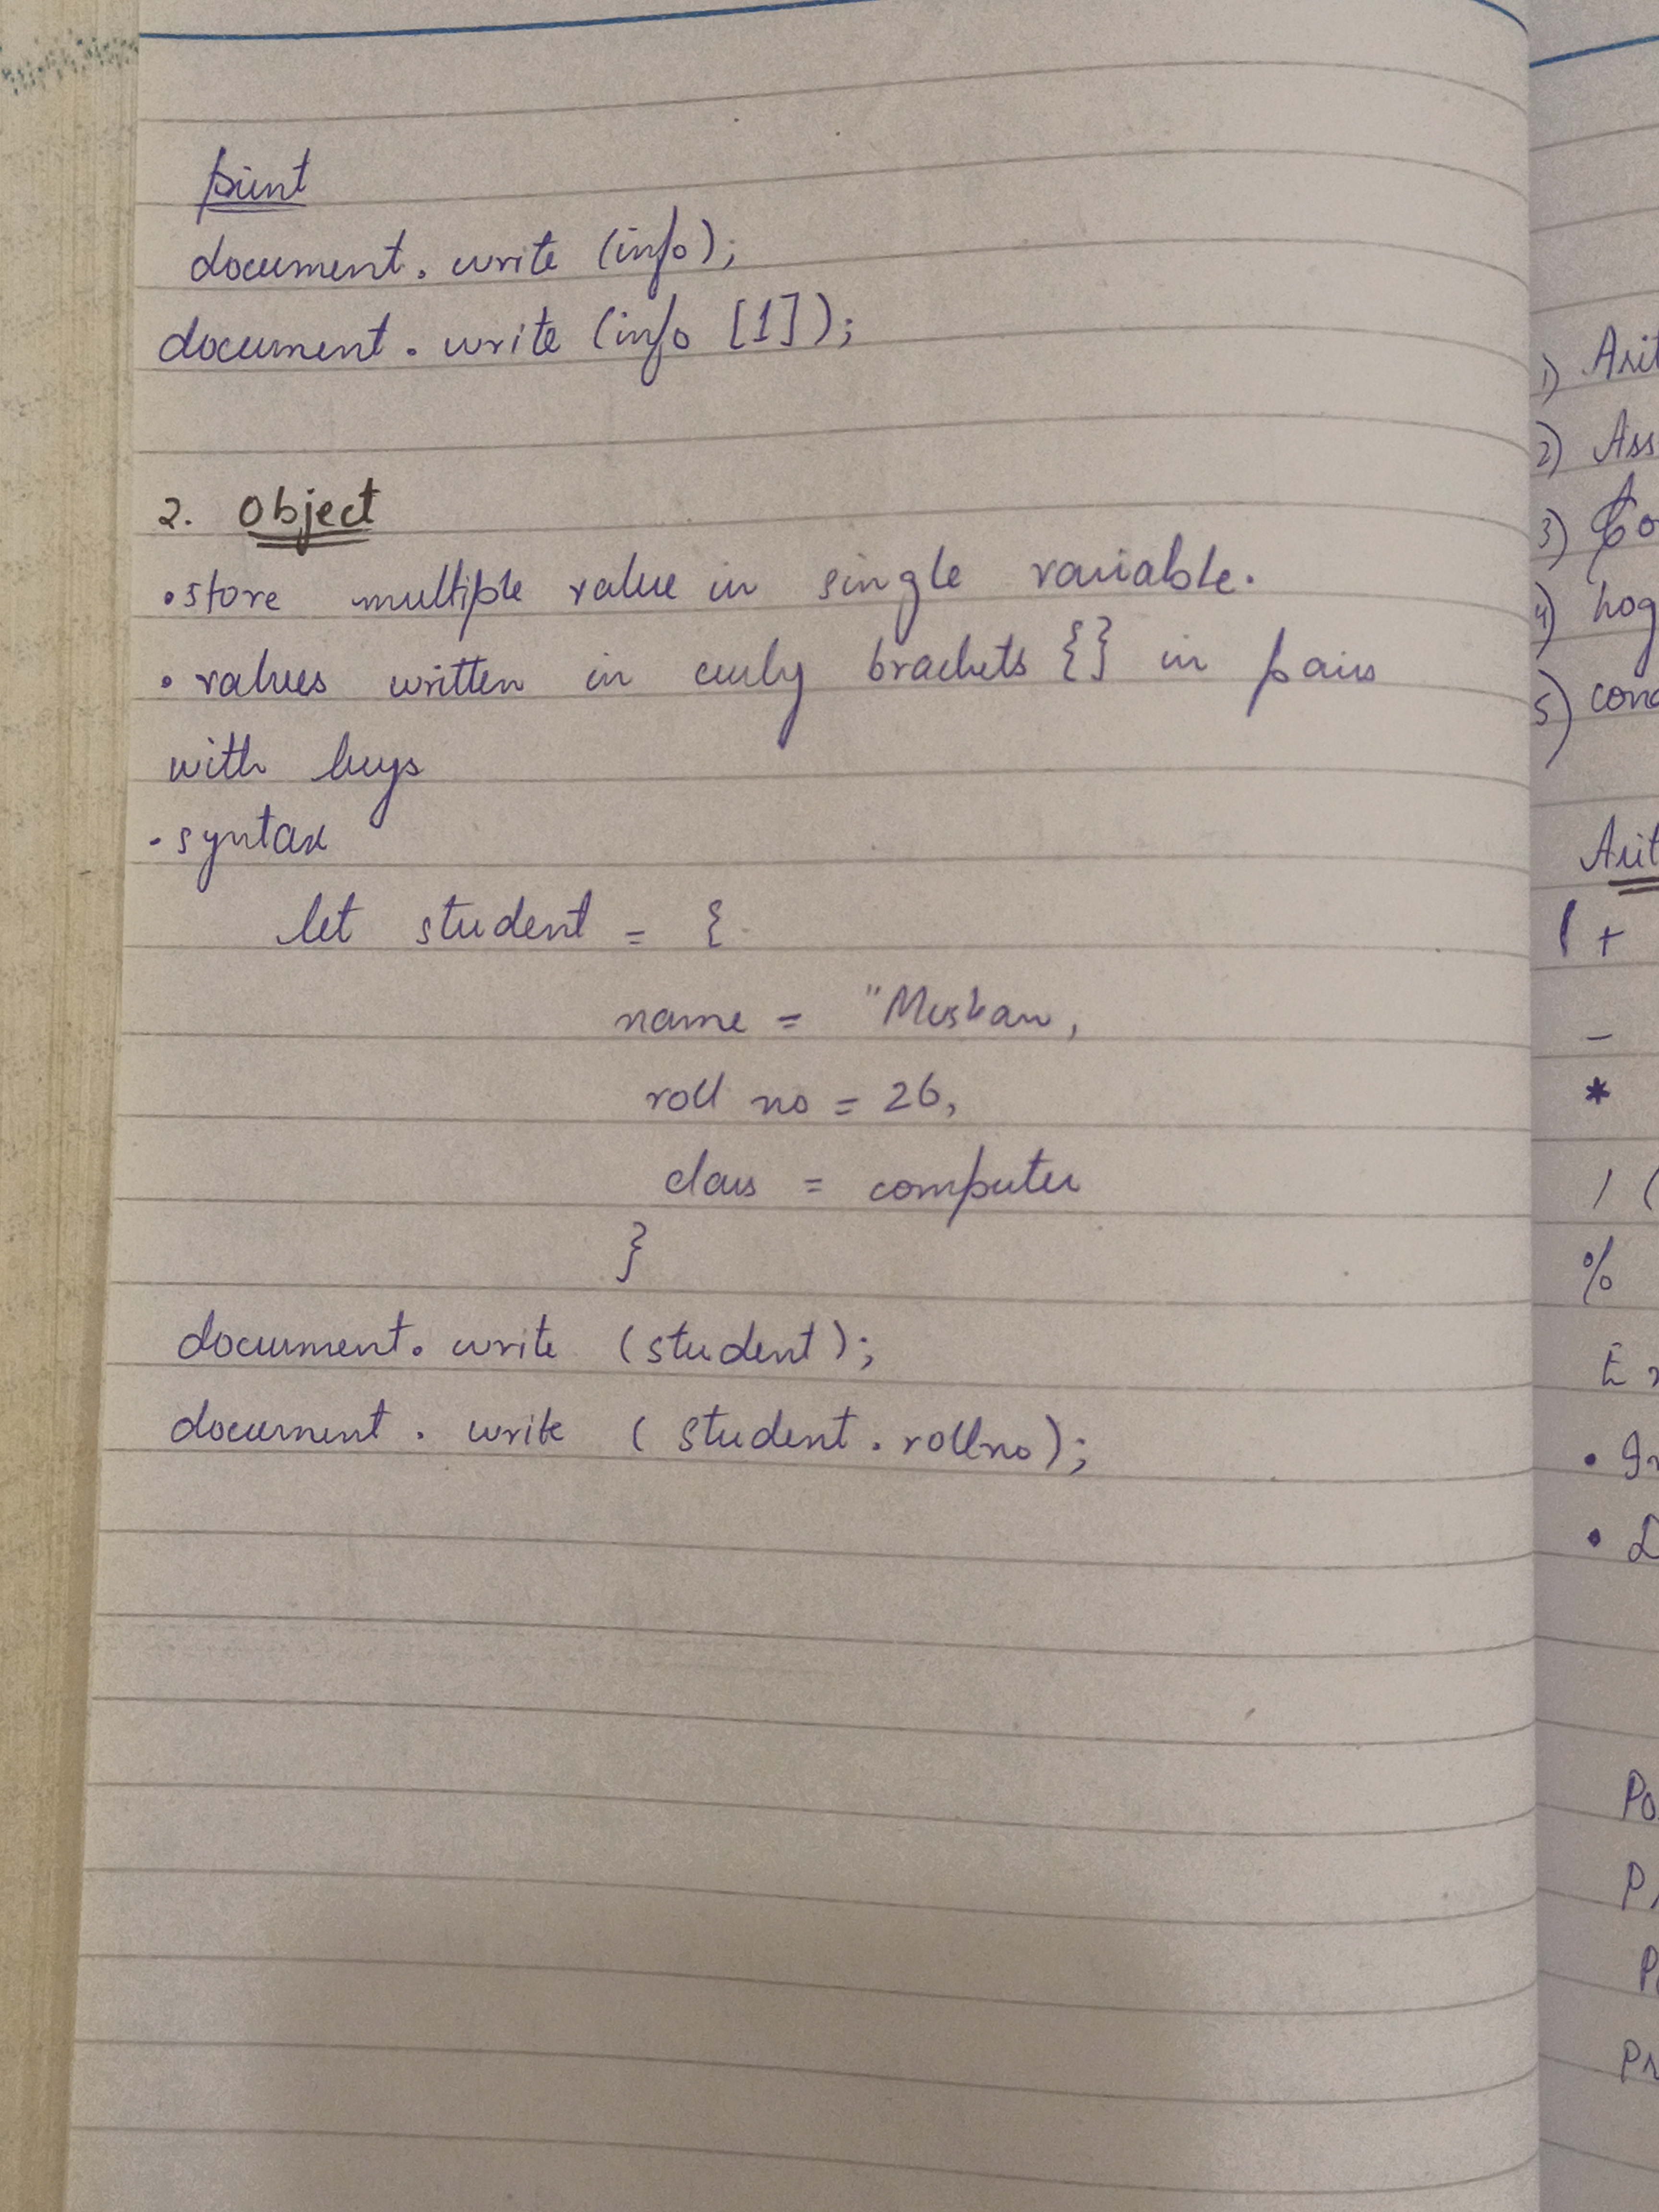 print
document. write (info);
document. write (info [1]);
2. Object
• store multiple value in single variable.
• values written in curly brackets {} in pairs
with keys
• syntax
let student = {
name = "Muskan,
roll no = 26,
class = computer
}
document. write (student);
document. write (student. rollno);
1) Arit
2) Ass
3) Co
4) Log
5) cond
Arit
+
-
*
/ (
%
Ex
• In
• D
Po
Pr